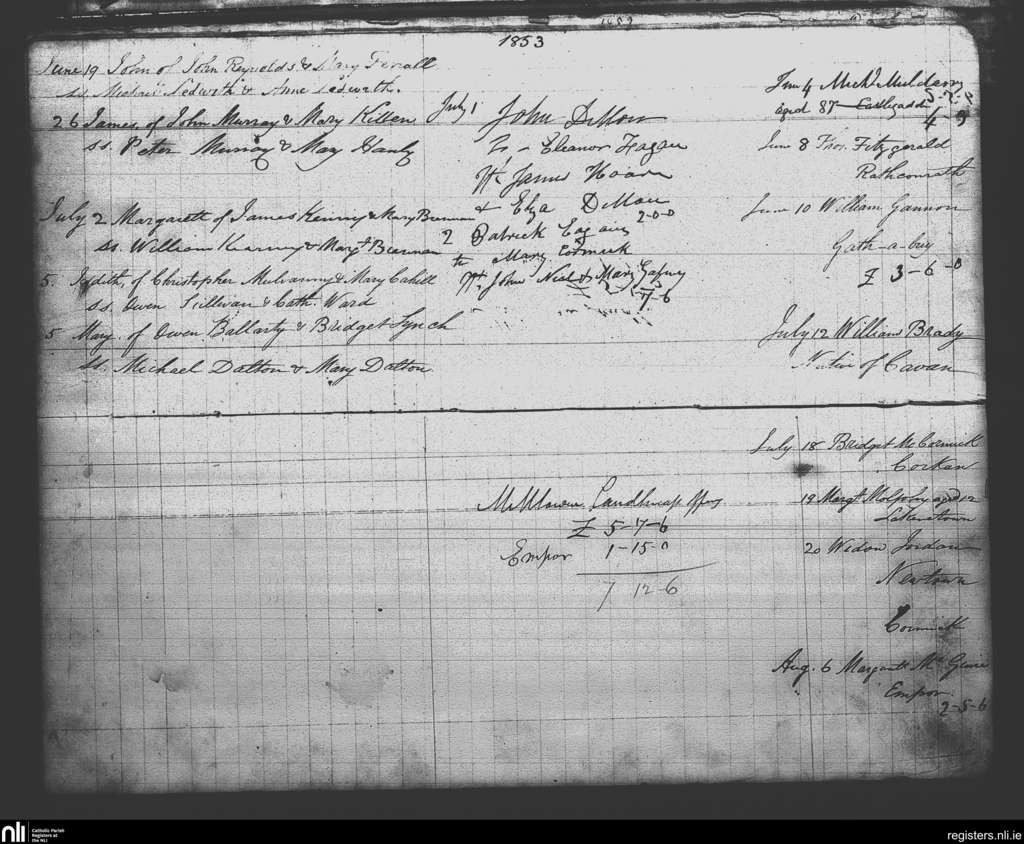 1853
June 19 John of John Reynolds & Mary Ferrall
ss. Ledwith & Anne Ledwith.
26 James, of John Murray & Mary Killen
ss. Peter Murray & Mary
July 2 Margarett of James Kenny & Mary Brennan
ss. William Kearney & Margt Brennan
5. Judith, of Christopher Mulvanny & Mary Cahill
ss. Owen Sullivan & Cath. Ward
5 Mary. of Owen Ballarty & Bridget Lynch
ss. Michael Dalton & Mary Dalton
July 1 John Dillon
to Eleanor Fagan
Wt James Hoare
& Eliza Dillon
2-0-0
2 Patrick Eagan
to Mary Cormick
Wt. John Neal & Mary Gafney
7-6
Milltown
£ 5-7-6
Empor 1-15-0
7 12-6
June 4 Michl Muldarry
aged 87
June 8 Thos. Fitzgerald
Rathconrath
June 10 William Gannon
Gath-a-buy
£ 3-6-0
July 12 William Brady
Native of Cavan
July 18 Bridget McCormick
Corkan
19 Margt aged 12
20 Widow Jordan
Newtown
Cormick
Aug. 6 Margaret McGuire
Empor.
2-5-6
nli
Catholic Parish
Registers at
the NLI
registers.nli.ie